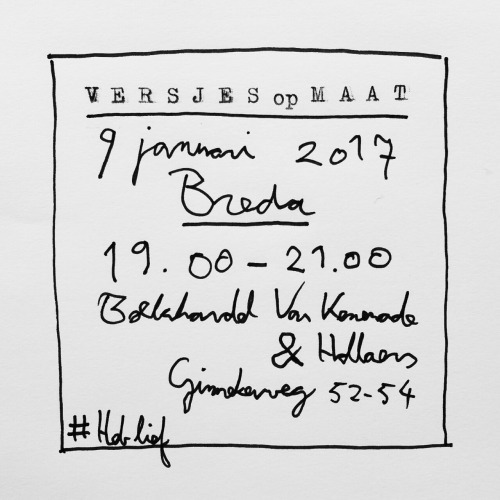 VERSJES op MAAT
9 januari 2017
Breda
19.00 - 21.00
Boekhandel Van Kemenade
& Hollaers
Ginnekenweg 52-54
#Heb lief